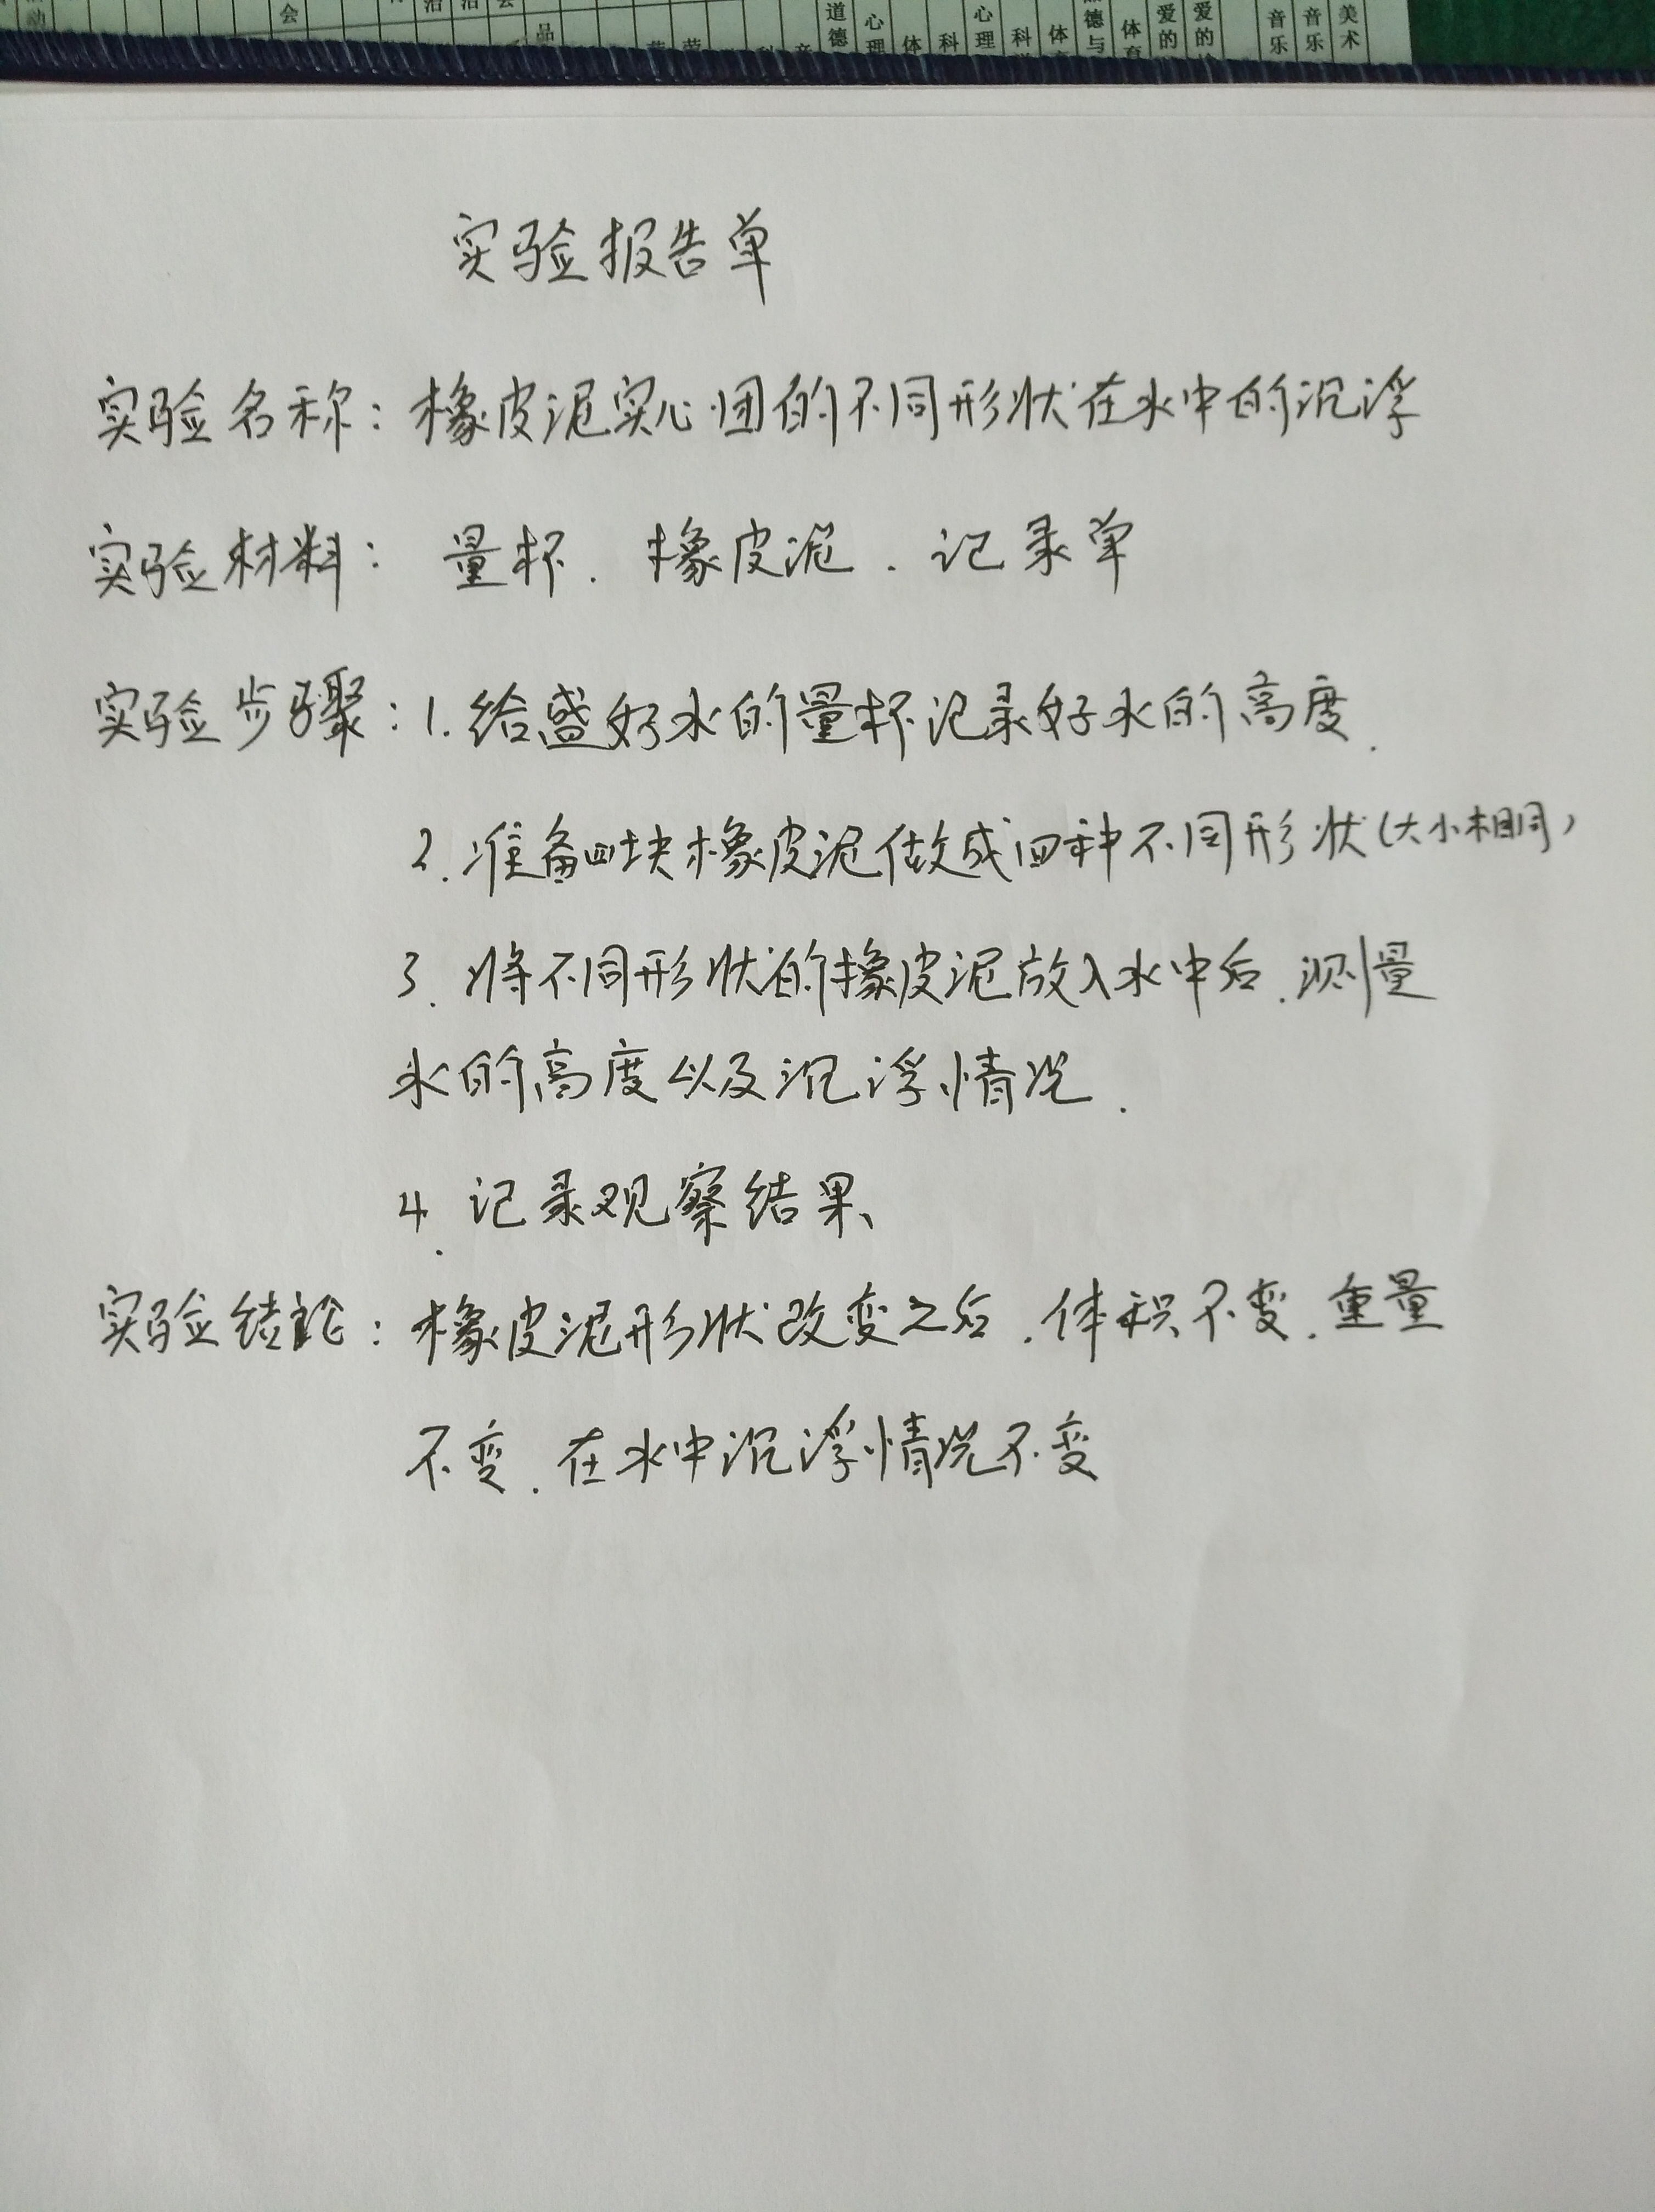 会
品
道德 心理 体 科 心理 科 体 德与 体育 爱的 爱的 音乐 音乐 美术
实验报告单
实验名称：橡皮泥实心团的不同形状在水中的沉浮
实验材料：量杯．橡皮泥．记录单
实验步骤：1.给盛好水的量杯记录好水的高度．
2.准备四块橡皮泥做成四种不同形状(大小相同)
3．将不同形状的橡皮泥放入水中后．测量
水的高度以及沉浮情况．
4．记录观察结果、
实验结论：橡皮泥形状改变之后．体积不变．重量
不变．在水中沉浮情况不变